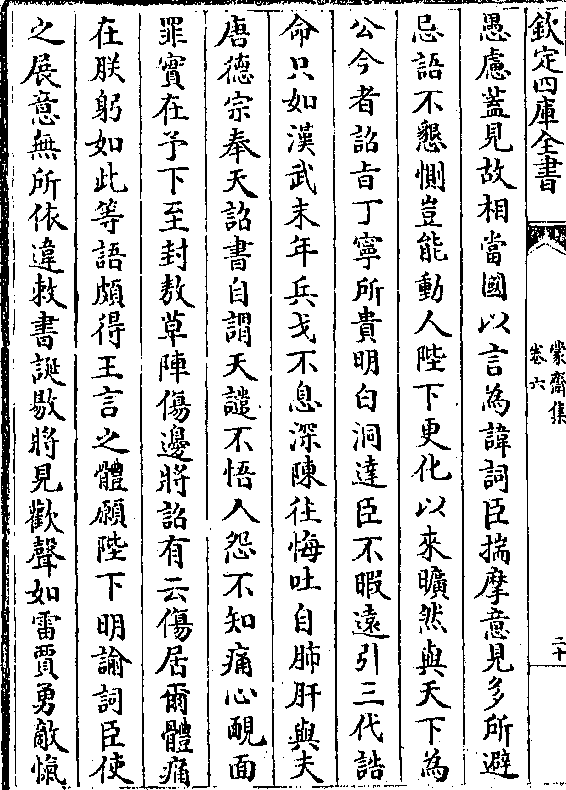 欽定四庫全書
蒙齋集
卷六
二十
愚慮蓋見故相當國以言為諱詞臣揣摩意見多所避
忌語不懇惻豈能動人陛下更化以來曠然與天下為
公今者詔旨丁寧所貴明白洞達臣不暇遠引三代誥
命只如漢武末年兵戈不息深陳往悔吐自肺肝與夫
唐德宗奉天詔書自謂天譴不悟人怨不知痛心靦面
罪實在予下至封敖草陣傷邊將詔有云傷居爾體痛
在朕躬如此等語頗得王言之體願陛下明諭詞臣使
之展意無所依違赦書誕敭將見歡聲如雷賈勇敵愾